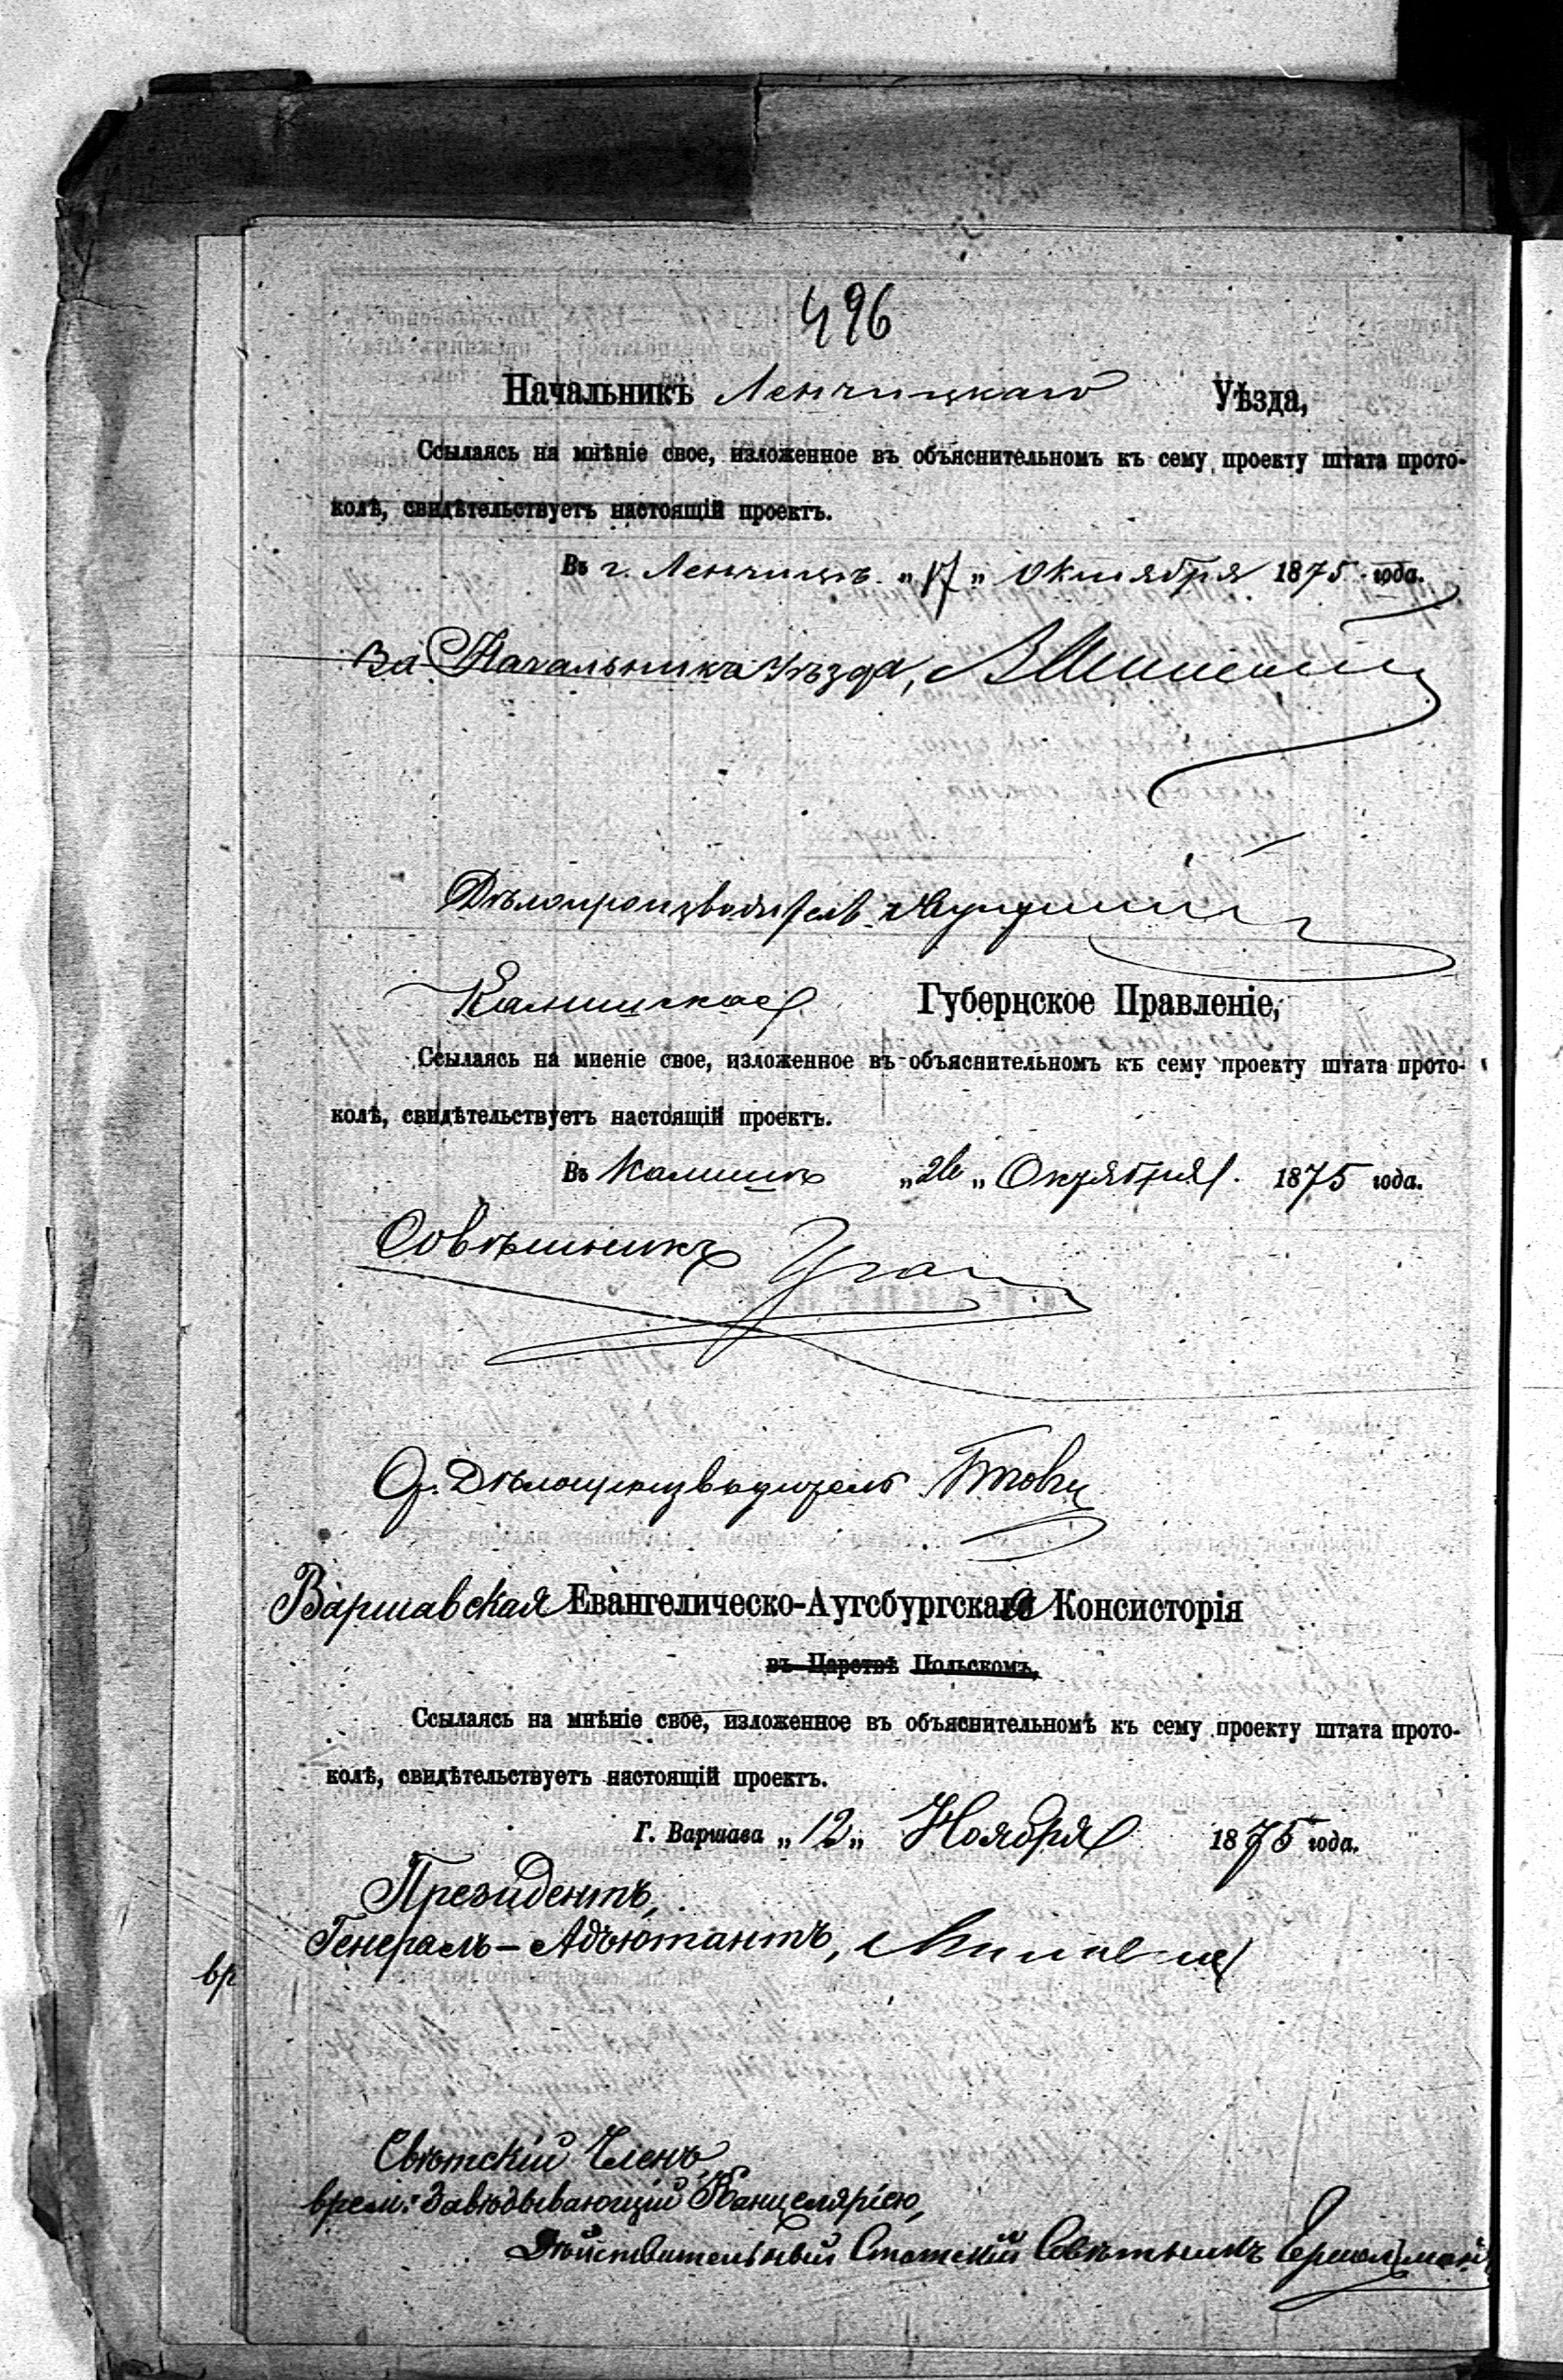 496
Начальникъ Ленчицкаго Уѣзда,
Ссылаясь на мнѣніе свое, изложенное въ объяснительномъ къ сему проекту штата прото-
колѣ, свидѣтельствуетъ настоящій проектъ.
Въ г. Ленчицѣ „17„ Октября 1875 года.
За Начальника Уѣзда,
Дѣлопроизводитель
Калишское Губернское Правленіе,
Ссылаясь на мненіе свое, изложенное въ объяснительномъ къ сему проекту штата прото-
колѣ, свидѣтельствуетъ настоящій проектъ.
Въ Калишѣ „26„ Октября 1875 года.
Совѣтникъ
Дѣлопроизводитель
Варшавская Евангелическо-Аугсбургская Консисторія
въ Царствѣ Польскомъ,
Ссылаясь на мнѣніе свое, изложенное въ объяснительномъ къ сему проекту штата прото-
колѣ, свидѣтельствуетъ настоящій проектъ.
Г. Варшава „12„ Ноября 1875 года.
Президентъ,
Генералъ-Адъютантъ,
вр
Свѣтскій Членъ
врем: Завѣдывающій Канцеляріею,
Дѣйствительный Статскій Совѣтникъ